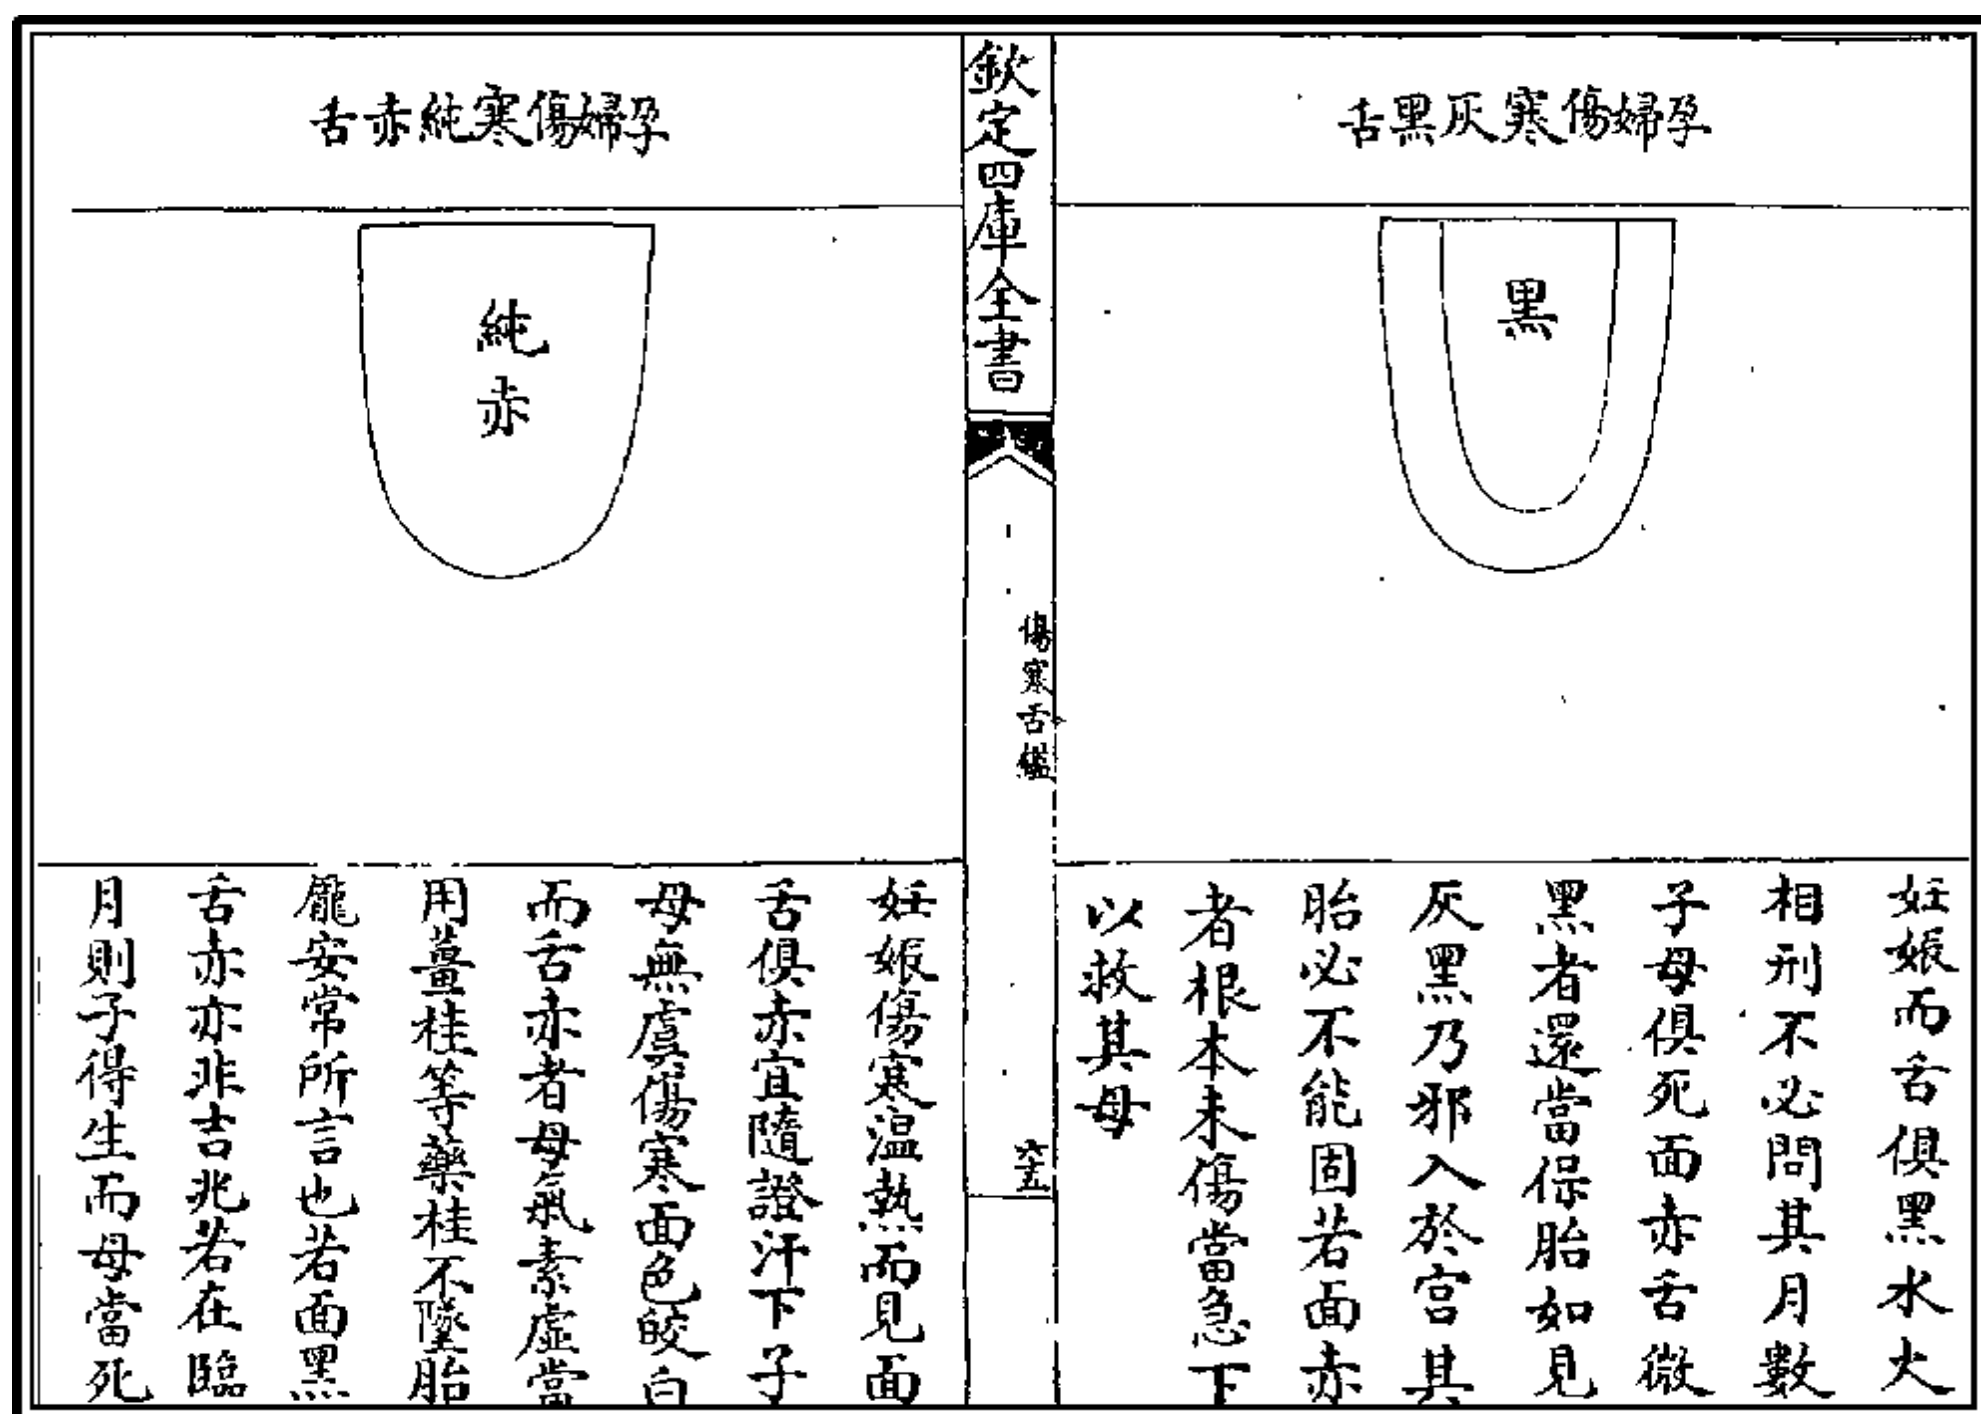 孕婦傷寒灰黑舌
黑
妊娠而舌俱黑水火
相刑不必問其月數
子母俱死面赤舌微
黑者還當保胎如見
灰黑乃邪入於宫其
胎必不能固若面赤
者根本未傷當急下
以救其母
欽定四庫全書
傷寒舌鑑
六十五
孕婦傷寒純赤舌
純赤
妊娠傷寒温熱而見面
舌俱赤宜隨證汗下子
母無虞傷寒面色皎白
而舌赤者母氣素虛當
用薑桂等藥桂不墜胎
龐安常所言也若面黑
舌赤亦非吉兆若在臨
月則子得生而母當死